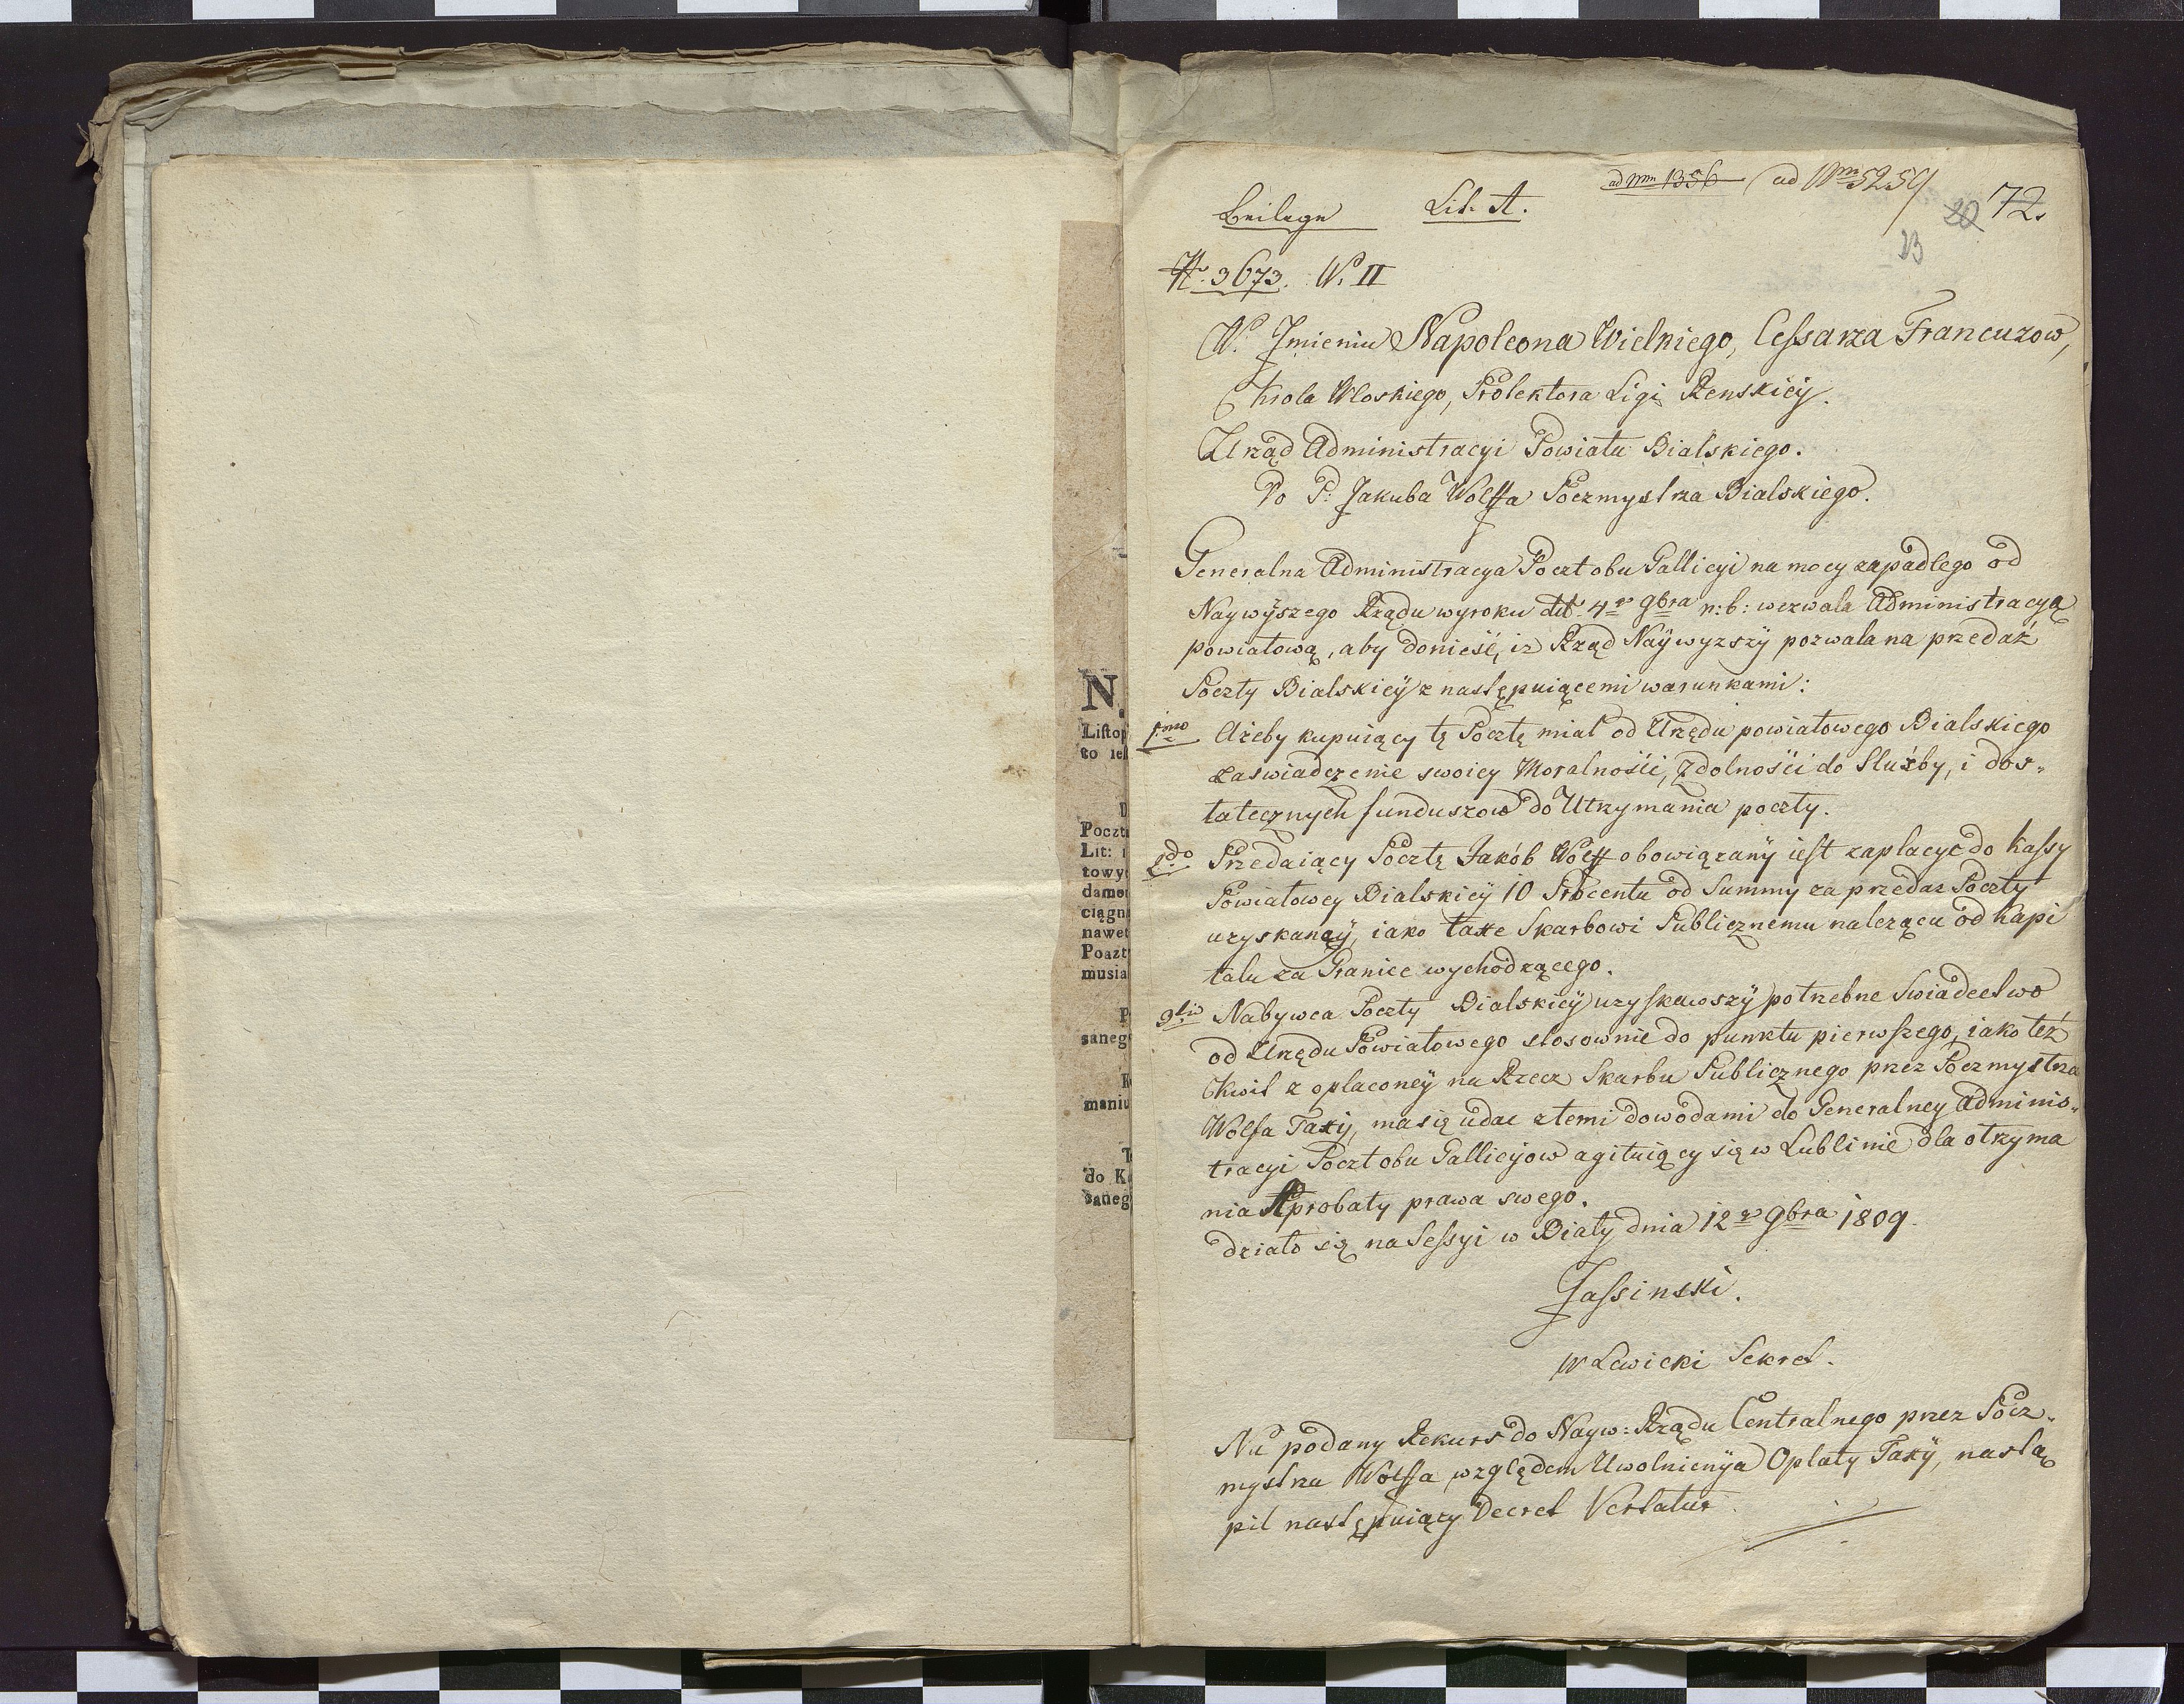 N.
Liſtop
to ieſ
D
Poczt
Lit:
towy
damo
ciągn
nawet
Poazt
musia
P
saneg
K
maniu
T
do K
saneg
ad Nrm 1356 ad Nrm 5259
Beilage Lit. A.
20 72.
23
N. 3673. N. II
W. Jmieniu Napoleona Wielkiego, Ceſsarza Francuzow,
Krola Wloskiego, Protektora Ligi Renskiey.
Urząd Administracyi Powiatu Bialskiego.
Do P. Jakuba Wolffa Poczmystrza Bialskiego.
Generalna Administracya Poczt obu Gallicyi na mocy zapadlego od
Naywyszego Rządu wyroku dtt 4go 9bra r: b: wezwala Administracyą
powiatową, aby donieść, iz Rząd Naywyzszy pozwala na przedaź
Poczty Bialskiey z następuiącemi warunkami:
1mo Ażeby kupuiący tę Pocztę miał od Urzędu powiatowego Bialskiego
zaswiadczenie swoiey Moralności, Zdolności do Służby, i dos„
tatecznych funduszow do Utrzymania poczty.
2do Przedaiący Pocztę Jakób Wolff obowiązany ieſt zaplacyc do Kaſsy
Powiatowey Bialskiey 10 Procentu od Summy za przedaz Poczty
uzyskanęy, iako taxe Skarbowi Publicznemu nalezącu od Kapi
talu za Granice wychodzącego.
3tio Nabywca Poczty Bialskiey uzyſkawszy potrzebne Swiadectwo
od Urzędu Powiatowego stosownie do punktu pierwſzego, iako też
Kwit z oplaconey na Rzecz Skarbu Publicznego przez Poczmystrza
Wolfa Taxy, ma się udac z temi dowodami do Generalney Adminis„
tracyi Poczt obu Gallicyow agituiący się w Lublinie dla otrzyma
nia Aprobaty prawa swego.
działo się na Seſsyi w Biały dnia 12go 9bra 1809.
Jaſsinski.
W Lewicki Sekret.
Na podany Rekurs do Nayw: Rządu Centralnego przez Pocz„
mystrza Wolffa względem Uwolnienya Oplaty Taxy, nastą
pil następuiący Decret Vertatur